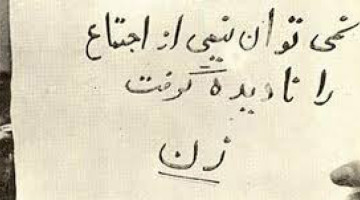 نمی توان نیمی از اجتماع
را نادیده گرفت
زن